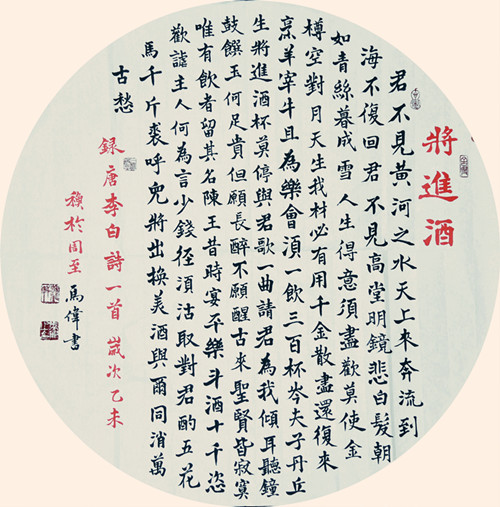 將進酒
君不見黃河之水天上來奔流到
海不復回君不見高堂明鏡悲白髮朝
如青絲暮成雪人生得意須盡歡莫使金
樽空對月天生我材必有用千金散盡還復來
烹羊宰牛且為樂會湏一飲三百杯岑夫子丹丘
生將進酒杯莫停與君歌一曲請君為我傾耳聽鐘
鼓饌玉何足貴但願長醉不願醒古來聖賢皆寂寞
唯有飲者留其名陳王昔時宴平樂斗酒十千恣
歡謔主人何為言少錢徑湏沽取對君酌五花
馬千斤裘呼兒將出換美酒與爾同消萬
古愁
録唐李白詩一首歲次乙未
於周至馬偉書